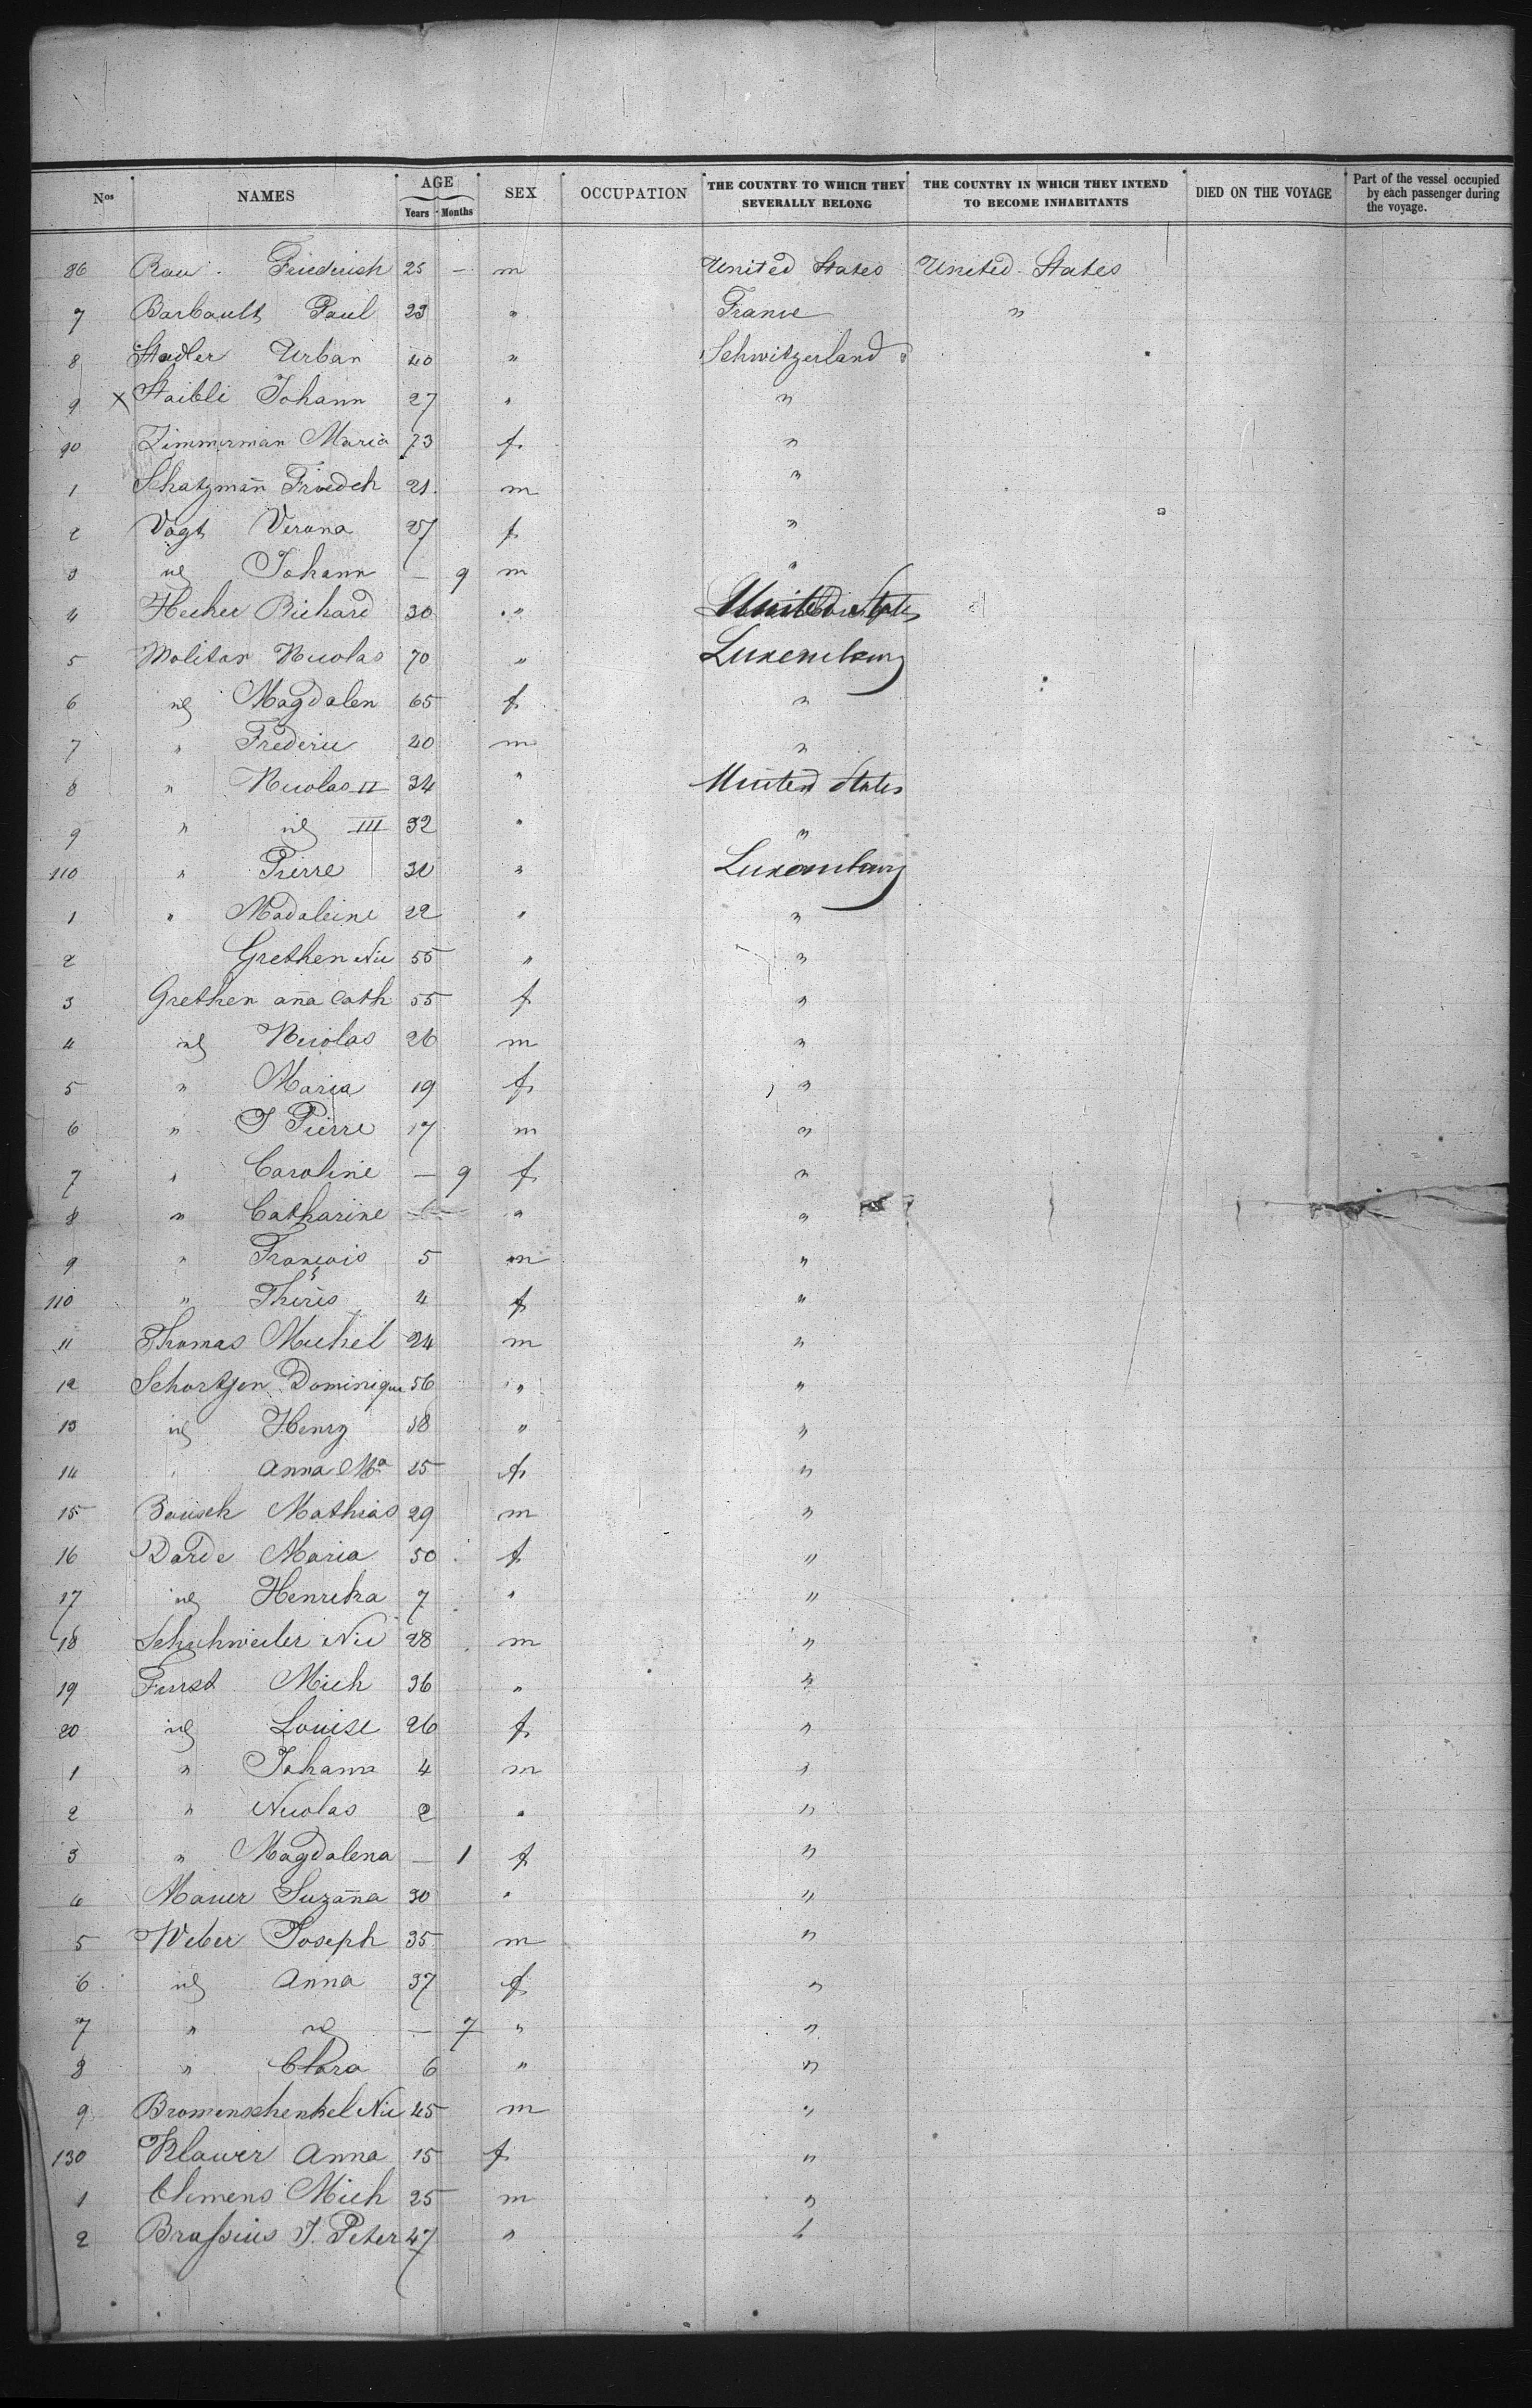 Nos NAMES AGE Years Months SEX OCCUPATION THE COUNTRY TO WHICH THEY SEVERALLY BELONG THE COUNTRY IN WHICH THEY INTEND TO BECOME INHABITANTS DIED ON THE VOYAGE Part of the vessel occupied by each passenger during the voyage.
86 Rau Friedrich 25 — m United States United States
7 Barbault Paul 23 " France "
8 Stadler Urban 40 " Schwitzerland "
9 X Staibli Johann 27 " "
90 Zimmerman Maria 73 f "
1 Schatzmañ Friedch 21 m "
2 Vogt Verona 27 f "
3 id Johann — 9 m "
4 Hecher Richard 30 " United States
5 Molitor Nicolas 70 " Luxemburg
6 id Magdalen 65 f "
7 " Frederic 40 m "
8 " Nicolas II 34 " United States
9 " id III 32 " "
110 " Pierre 30 " Luxemburg
1 " Madaleine 22 " "
2 Grethen Nic 55 " "
3 Grethen aña Cath 55 f "
4 id Nicolas 26 m "
5 " Maria 19 f "
6 " J Pierre 17 m "
7 " Caroline — 9 f "
8 " Catharine " "
9 " François 5 m "
110 " Thérès 4 f "
11 Thomas Michel 24 m "
12 Schortgen Dominique 56 " "
13 id Henry 38 " "
14 " Anna Ma 25 f "
15 Bausch Mathias 29 m "
16 Darde Maria 50 f "
17 id Henrika 7 " "
18 Schuhweiler Nic 28 m "
19 Furst Mich 36 " "
20 id Louise 26 f "
1 " Johann 4 m "
2 " Nicolas 2 " "
3 " Magdalena — 1 f "
4 Mauer Suzaña 30 " "
5 Weber Joseph 35 m "
6 id Anna 37 f "
7 " id — 7 " "
8 " Clara 6 " "
9 Bromenschenkel Nic 45 m "
130 Klauer Anna 15 f "
1 Clemens Mich 25 m "
2 Braſsius J. Peter 47 " "